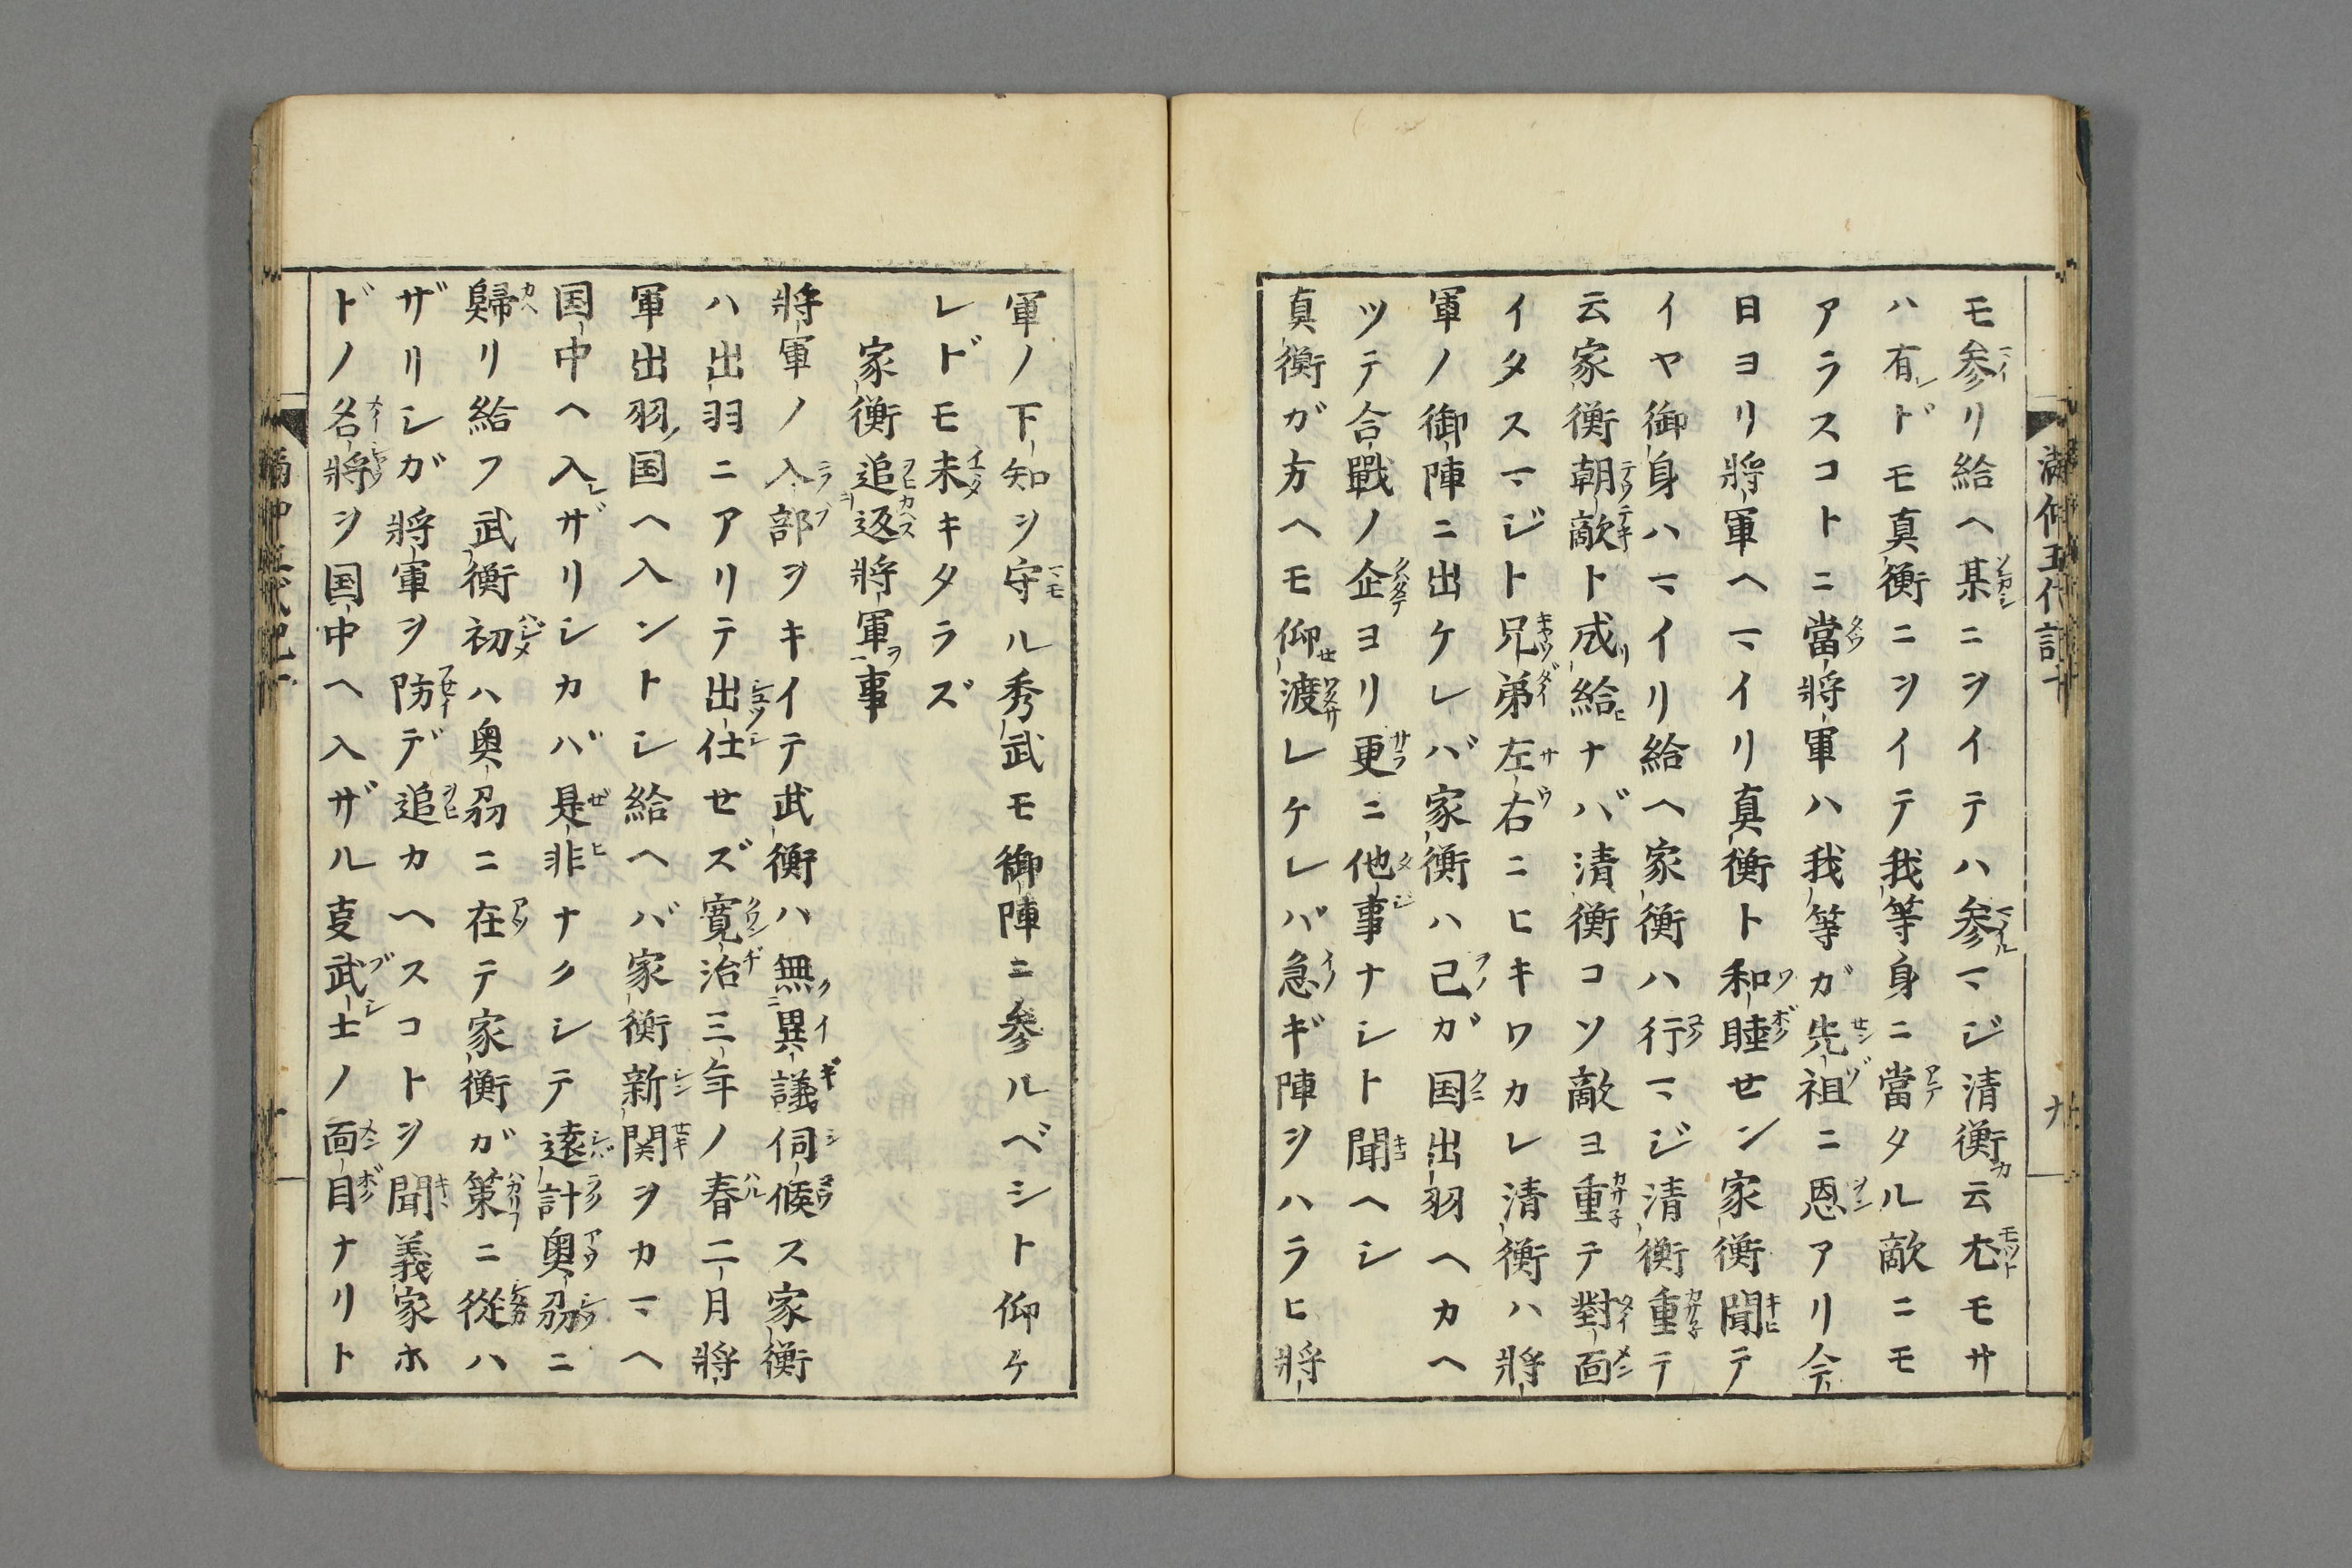 モ参リ給ヘ某ニヲイテハ参マジ清衡云尤モサ
ハ有ドモ真衡ニヲイテ我等身ニ當タル敵ニモ
アラスコトニ當將軍ハ我等ガ先祖ニ恩アリ今
日ヨリ將軍ヘマイリ真衡ト和睦セン家衡聞テ
イヤ御身ハマイリ給ヘ家衡ハ行マジ清衡重テ
云家衡朝敵ト成給ナバ清衡コソ敵ヨ重テ對面
イタスマジト兄弟左右ニヒキワカレ清衡ハ將
軍ノ御陣ニ出ケレバ家衡ハ己ガ国出羽ヘカヘ
ツテ合戰ノ企ヨリ更ニ他事ナシト聞ヘシ
真衡ガ方ヘモ仰渡レケレバ急ギ陣ヲハラヒ將
軍ノ下知ヲ守ル秀武モ御陣ニ参ルベシト仰ケ
レドモ未キタラズ
家衡追返將軍事
將軍ノ入部ヲキイテ武衡ハ無異議伺候ス家衡
ハ出羽ニアリテ出仕セズ寛治三年ノ春二月將
軍出羽国ヘ入ントシ給ヘバ家衡新関ヲカマヘ
国中ヘ入ザリシカバ是非ナクシテ遠計奥刕ニ
歸リ給フ武衡初ハ奥刕ニ在テ家衡ガ策ニ從ハ
ザリシガ將軍ヲ防デ追カヘスコトヲ聞義家ホ
ドノ名將ヲ国中ヘ入ザル㕝武士ノ面目ナリト